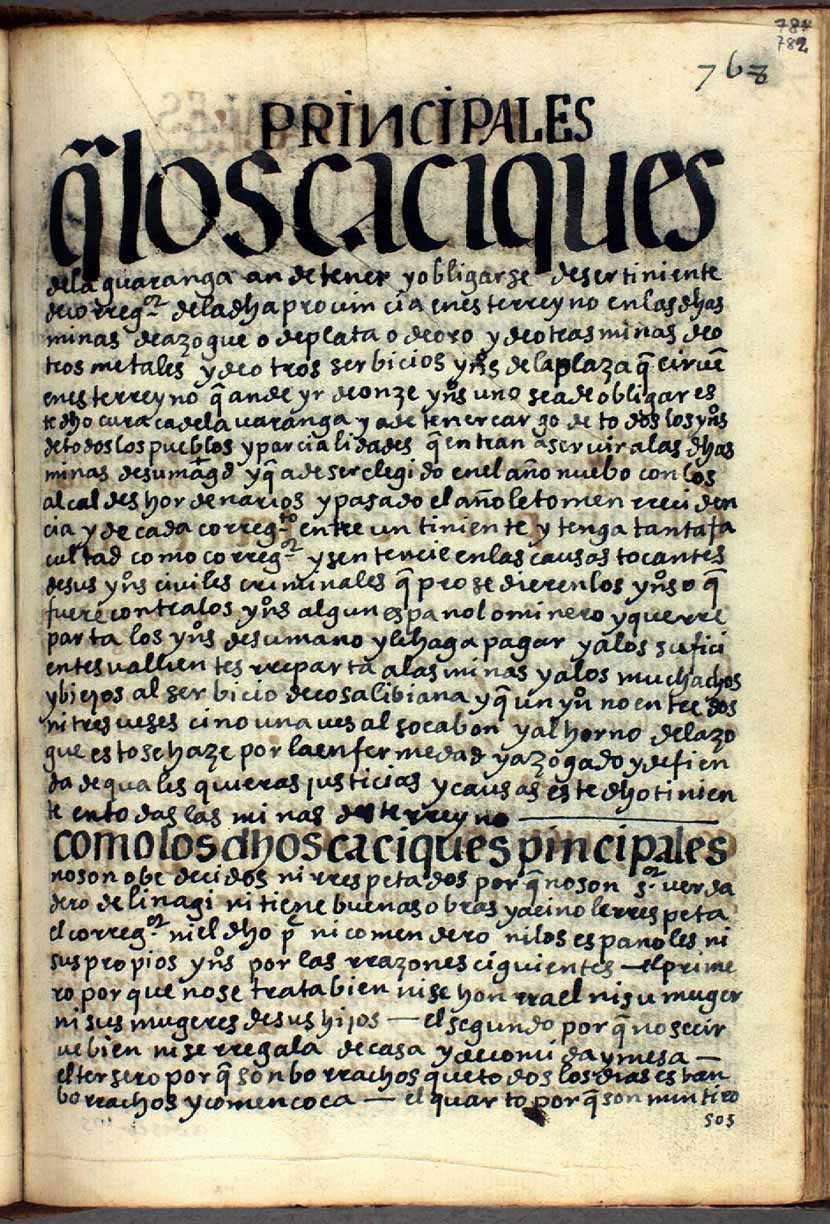 784
782
768
PRINCIPALES
q̃ los caciques
dela guaranga an de tener y obligarse de ser tiniente
de correg.or dela dha provincia en esterreyno en las dhas
minas de azogue o de plata o de oro y de otras minas de o
tros metales y de otros serbicios ynºs de la plaza q̃ ciruẽ
en esterreyno q̃ an de yr de onze ynºs uno se a de obligar es
te dho curaca dela uaranga y a de tener cargo de todos los ynºs
de todos los pueblos y parcialidades q̃ entran a servir a las dhas
minas de su magd y q̃ a de ser elegido en el año nuebo con los
alcaldes hordenarios y pasado el año le tomen rreciden
cia y de cada correg.to entre un tiniente y tenga tanta fa
cultad como correg.or y sentencie en las causas tocantes
de sus ynºs civiles criminales q̃ prosedieren los ynºs o q̃
fuere contra los ynºs algun espanol o minero y que rre
parta los ynºs de su mano y le haga pagar y a los sufici
entes vallientes rreparta a las minas y a los muchachos
y biejos al serbicio de cosa libiana y q̃ un ynº no entre dos
ni tres veses cino una ves al socabon y al horno del azo
gue esto se haze por la enfermedad y azogado y defien
da de quales quieras justicias y causas este dho tinien
te en todas las minas desterreyno
como los dhos caciques pincipales
no son obedecidos ni rrespetados por q̃ no son s.or verda
dero de linagi ni tiene buenas obras y aci no le rrespeta
el correg.or ni el dho p.e ni comendero ni los espanoles ni
sus propios ynºs por las rrazones ciguientes — el prime
ro por que no se trata bien ni se honrra el ni su muger
ni sus mugeres de sus hijos — el segundo por q̃ no se cir
ue bien ni se rregala de casa y de comida y mesa —
el tersero por q̃ son borrachos que todos los dias estan
borrachos y comen coca — el quarto por q̃ son mintiro
sos